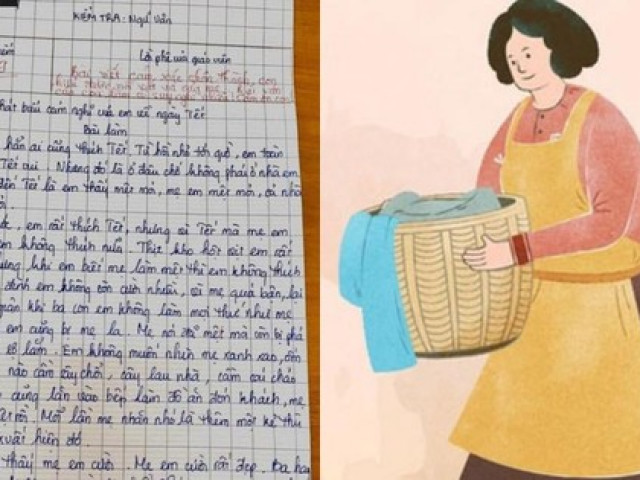 KIỂM TRA: Ngữ văn
Lời phê của giáo viên
Bài viết cảm xúc chân thành, con
Phát biểu cảm nghĩ của em về ngày Tết
Bài làm
hẳn ai cũng thích Tết. Từ hồi nhỏ tới giờ, em toàn
Tết vui. Nhưng đó là ở đâu chứ không phải ở nhà em
đến Tết là em thấy mệt mỏi, mẹ em mệt mỏi, cả nhà
, em rất thích Tết, nhưng vì Tết mà mẹ em
em không thích nữa. Thịt kho hột vịt em rất
nhưng khi em biết mẹ làm mệt thì em không thích
đình em không còn cười nhiều, vì mẹ quá bận, lại
giận khi ba con em không làm mọi thứ như mẹ
em cũng bị mẹ la. Mẹ nói đã mệt mà còn bị phá
lắm. Em không muốn nhìn mẹ xanh xao, ốm
nào cầm cây chổi, cây lau nhà, cầm cái chảo
cũng lẩn vào bếp làm đồ ăn đón khách, mẹ
rồi. Mỗi lần mẹ nhăn nhó là thêm một kẻ thù
xuất hiện đó.
thấy mẹ em cười. Mẹ em cười rất đẹp. Ba